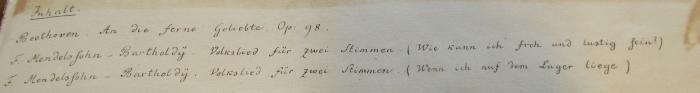 Inhalt.
Beethoven. An die ferne Geliebte. Op. 98.
F. Mendelssohn - Bartholdÿ. Volkslied für zwei Stimmen. (Wie kann ich froh und lustig sein?)
F. Mendelssohn - Bartholdÿ. Volkslied für zwei Stimmen. (Wenn ich auf dem Lager liege)